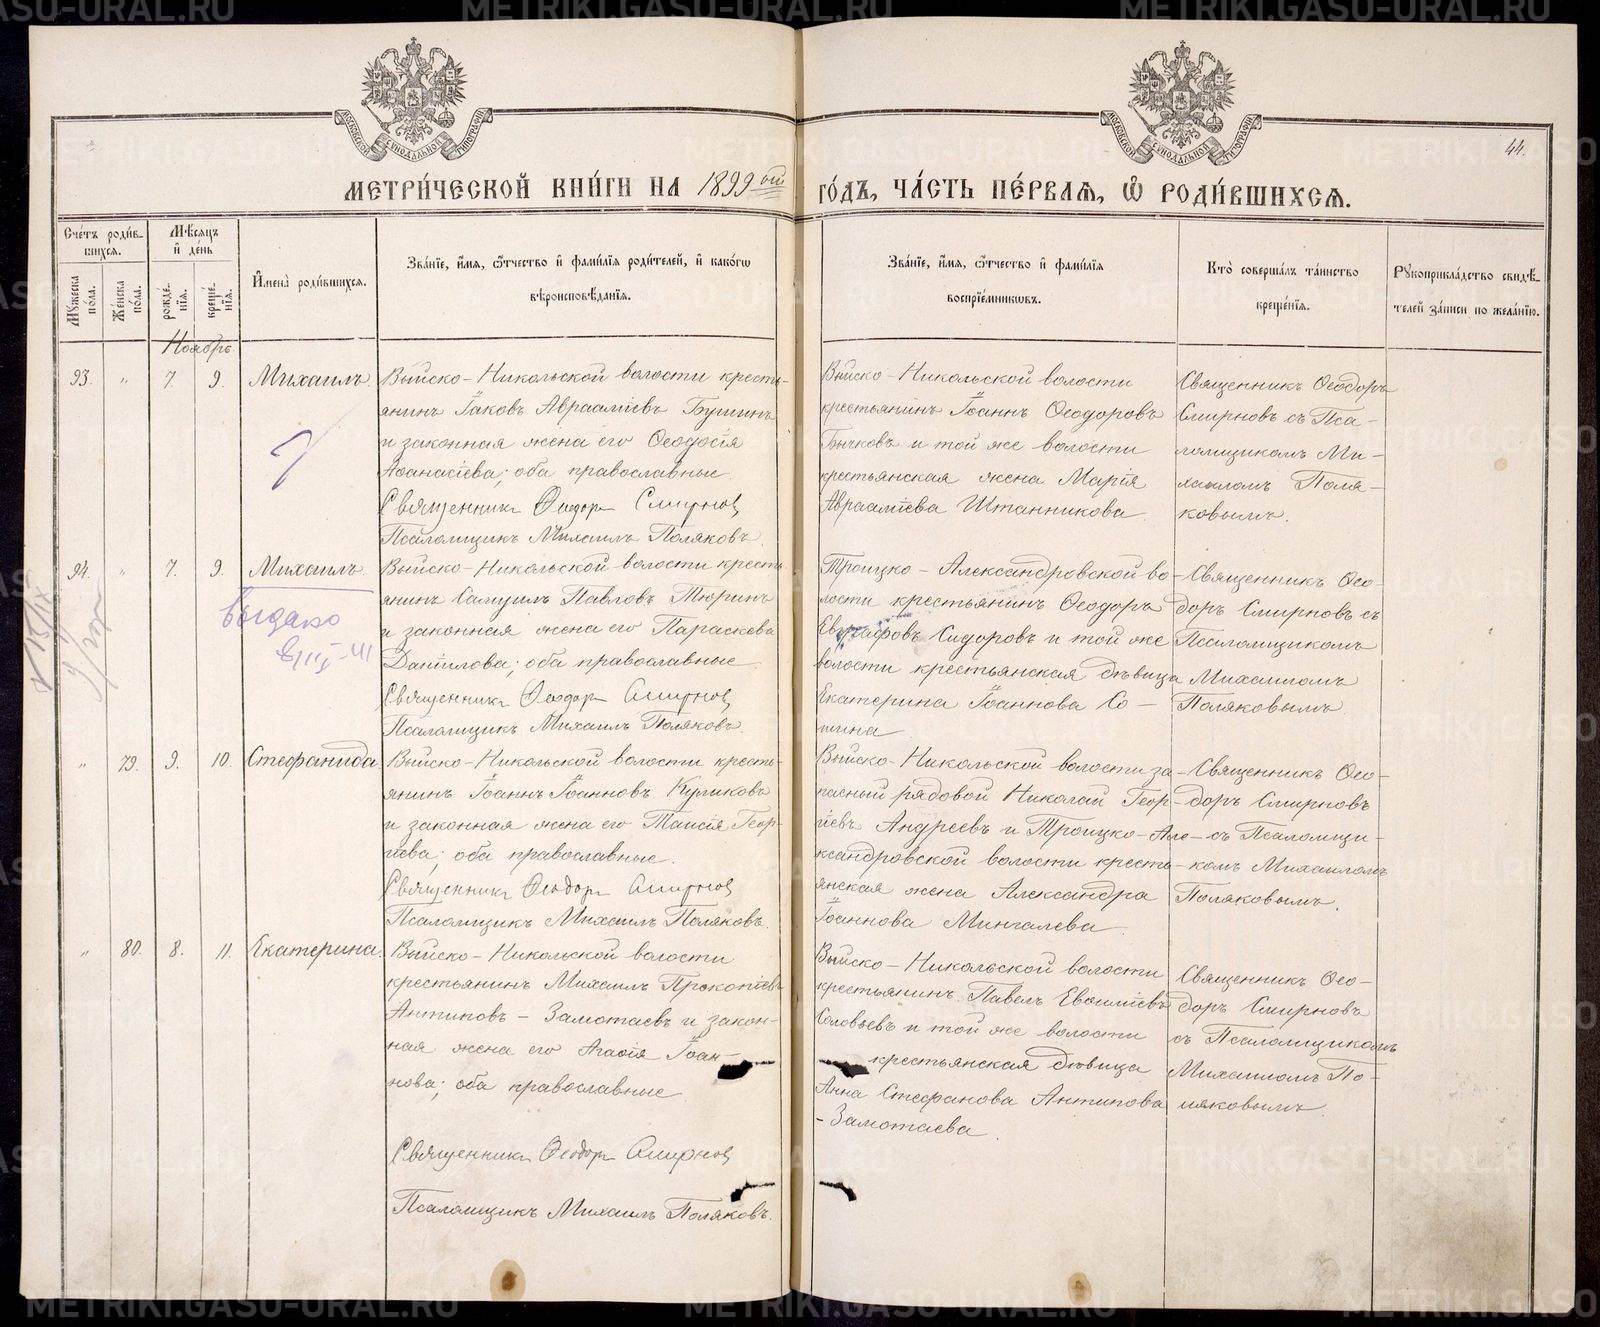 44.
МЕТРИ́ЧЕСКОЙ КНИ́ГИ НА 1899ый ГО́ДЪ, ЧА́СТЬ ПЕ́РВАЯ, Ѡ РОДИ́ВШИХСЯ.
Сче́тъ роди́вшихся.
Му́жеска по́ла.
Же́нска по́ла.
Мѣ́сяцъ и де́нь
рожде́нїя.
креще́нїя.
И҆мена̀ роди́вшихся.
Зва́нїе, и҆́мя, ѻ҆́тчество и҆ фами́лїя роди́телей, и҆ како́гѡ
вѣроисповѣ́данїя.
Зва́нїе, и҆́мя, ѻ҆́тчество и҆ фами́лїя
воспрїе́мникѡвъ.
Кто̀ соверша́лъ та́инство
креще́нїя.
Рꙋкоприкла́дство свидѣ́-
телей за́писи по жела́нїю.
Ноябрь
93. " 7. 9. Михаилъ.
Выйско-Никольской волости кресть-
янинъ Іаковъ Авраамїевъ Бушинъ
и законная жена его Ѳеодосія
Аѳанасїева; оба православные.
Священникъ Ѳеодоръ Смирновъ
Псаломщикъ Михаилъ Поляковъ.
Выйско-Никольской волости
крестьянинъ Іоаннъ Ѳеодоровъ
Бычковъ и той же волости
крестьянская жена Марія
Авраамїева Штанникова.
Священникъ Ѳеодоръ
Смирновъ съ Пса-
ломщикомъ Ми-
хаиломъ Поля-
ковымъ.
94. " 7. 9. Михаилъ.
выдано
Выйско-Никольской волости кресть-
янинъ Самуилъ Павловъ Тюринъ
и законная жена его Параскева
Даніилова; оба православные.
Священникъ Ѳеодоръ Смирновъ
Псаломщикъ Михаилъ Поляковъ.
Троицко-Александровской во-
лости крестьянинъ Ѳеодоръ
Евграфовъ Сидоровъ и той же
волости крестьянская дѣвица
Екатерина Іоаннова Со-
нина.
Священникъ Ѳео-
доръ Смирновъ съ
Псаломщикомъ
Михаиломъ
Поляковымъ.
" 79. 9. 10. Стефанида.
Выйско-Никольской волости кресть-
янинъ Іоаннъ Іоанновъ Куликовъ
и законная жена его Таисія Геор-
гіева; оба православные.
Священникъ Ѳеодоръ Смирновъ
Псаломщикъ Михаилъ Поляковъ.
Выйско-Никольской волости за-
пасный рядовой Николай Геор-
гіевъ Андреевъ и Троицко-Але-
ксандровской волости кресть-
янская жена Александра
Іоаннова Мингалева.
Священникъ Ѳео-
доръ Смирновъ
съ Псаломщи-
комъ Михаиломъ
Поляковымъ.
" 80. 8. 11. Екатерина.
Выйско-Никольской волости
крестьянинъ Михаилъ Прокопіевъ
Антиповъ-Замотаевъ и закон-
ная жена его Агаѳія Іоан-
нова; оба православные.
Священникъ Ѳеодоръ Смирновъ
Псаломщикъ Михаилъ Поляковъ.
Выйско-Никольской волости
крестьянинъ Павелъ Евѳиміевъ
Соловьевъ и той же волости
крестьянская дѣвица
Анна Стефанова Антипова
-Замотаева.
Священникъ Ѳео-
доръ Смирновъ
съ Псаломщикомъ
Михаиломъ По-
ляковымъ.
METRIKI.GASO-URAL.RU